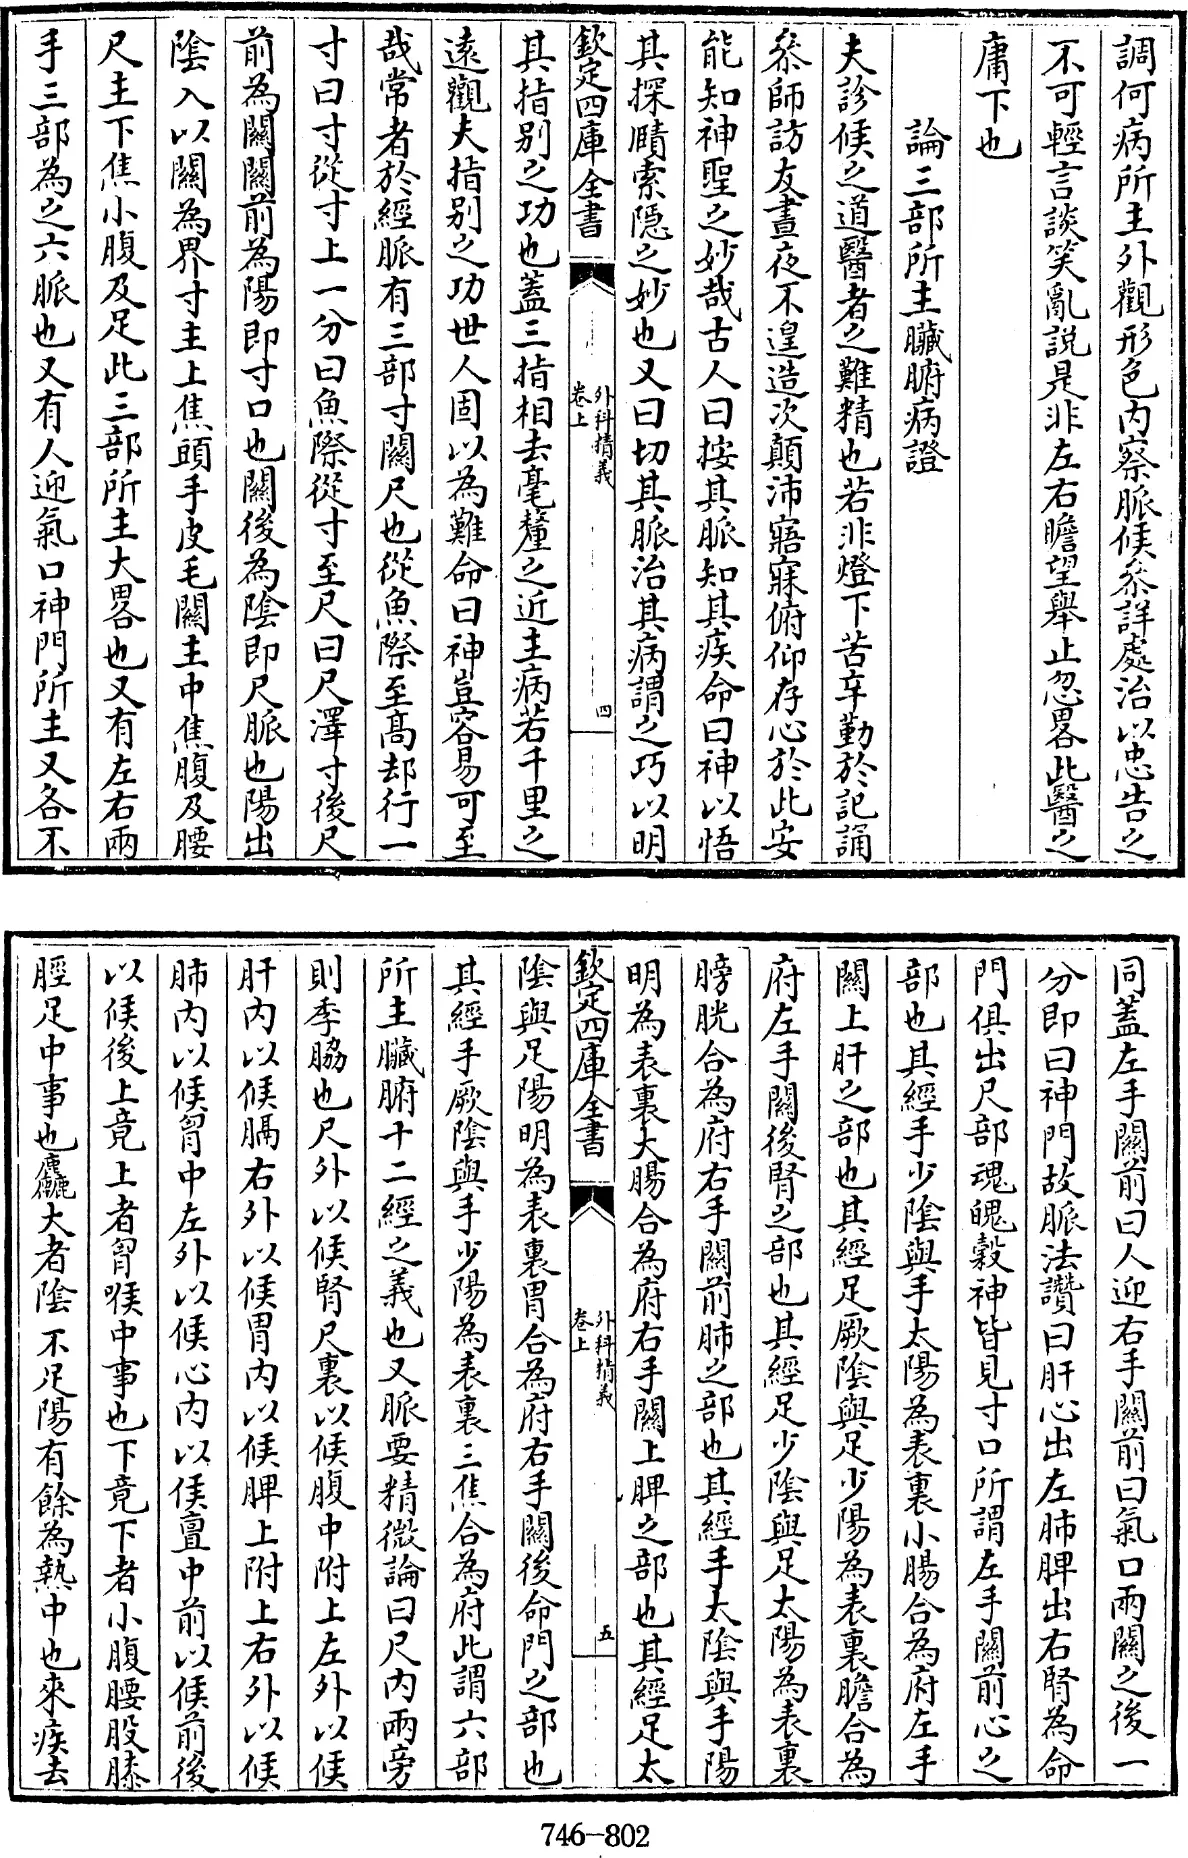 調何病所主外觀形色内察脈候叅詳處治以忠告之
不可輕言談笑亂説是非左右瞻望舉止忽畧此醫之
庸下也
論三部所主臟腑病證
夫診候之道醫者之難精也若非燈下苦辛勤於記誦
叅師訪友晝夜不遑造次顛沛寤寐俯仰存心於此安
能知神聖之妙哉古人曰按其脈知其疾命曰神以悟
其探賾索隱之妙也又曰切其脈治其病謂之巧以明
欽定四庫全書
外科精義
卷上
四
其指别之功也蓋三指相去毫釐之近主病若千里之
遠觀夫指别之功世人固以為難命曰神豈容易可至
哉常者於經脈有三部寸關尺也從魚際至高却行一
寸曰寸從寸上一分曰魚際從寸至尺曰尺澤寸後尺
前為關關前為陽即寸口也關後為陰即尺脈也陽出
陰入以關為界寸主上焦頭手皮毛關主中焦腹及腰
尺主下焦小腹及足此三部所主大畧也又有左右兩
手三部為之六脈也又有人迎氣口神門所主又各不
同蓋左手關前曰人迎右手關前曰氣口兩關之後一
分即曰神門故脈法讚曰肝心出左肺脾出右腎為命
門俱出尺部魂魄穀神皆見寸口所謂左手關前心之
部也其經手少陰與手太陽為表裏小腸合為府左手
關上肝之部也其經足厥陰與足少陽為表裏膽合為
府左手關後腎之部也其經足少陰與足太陽為表裏
膀胱合為府右手關前肺之部也其經手太陰與手陽
明為表裏大腸合為府右手關上脾之部也其經足太
欽定四庫全書
外科精義
卷上
五
陰與足陽明為表裏胃合為府右手關後命門之部也
其經手厥陰與手少陽為表裏三焦合為府此謂六部
所主臟腑十二經之義也又脈要精微論曰尺内兩旁
則季脇也尺外以候腎尺裏以候腹中附上左外以候
肝内以候膈右外以候胃内以候脾上附上右外以候
肺内以候胷中左外以候心内以候亶中前以候前後
以候後上竟上者胷喉中事也下竟下者小腹腰股膝
脛足中事也麤大者陰不足陽有餘為熱中也來疾去
746-802